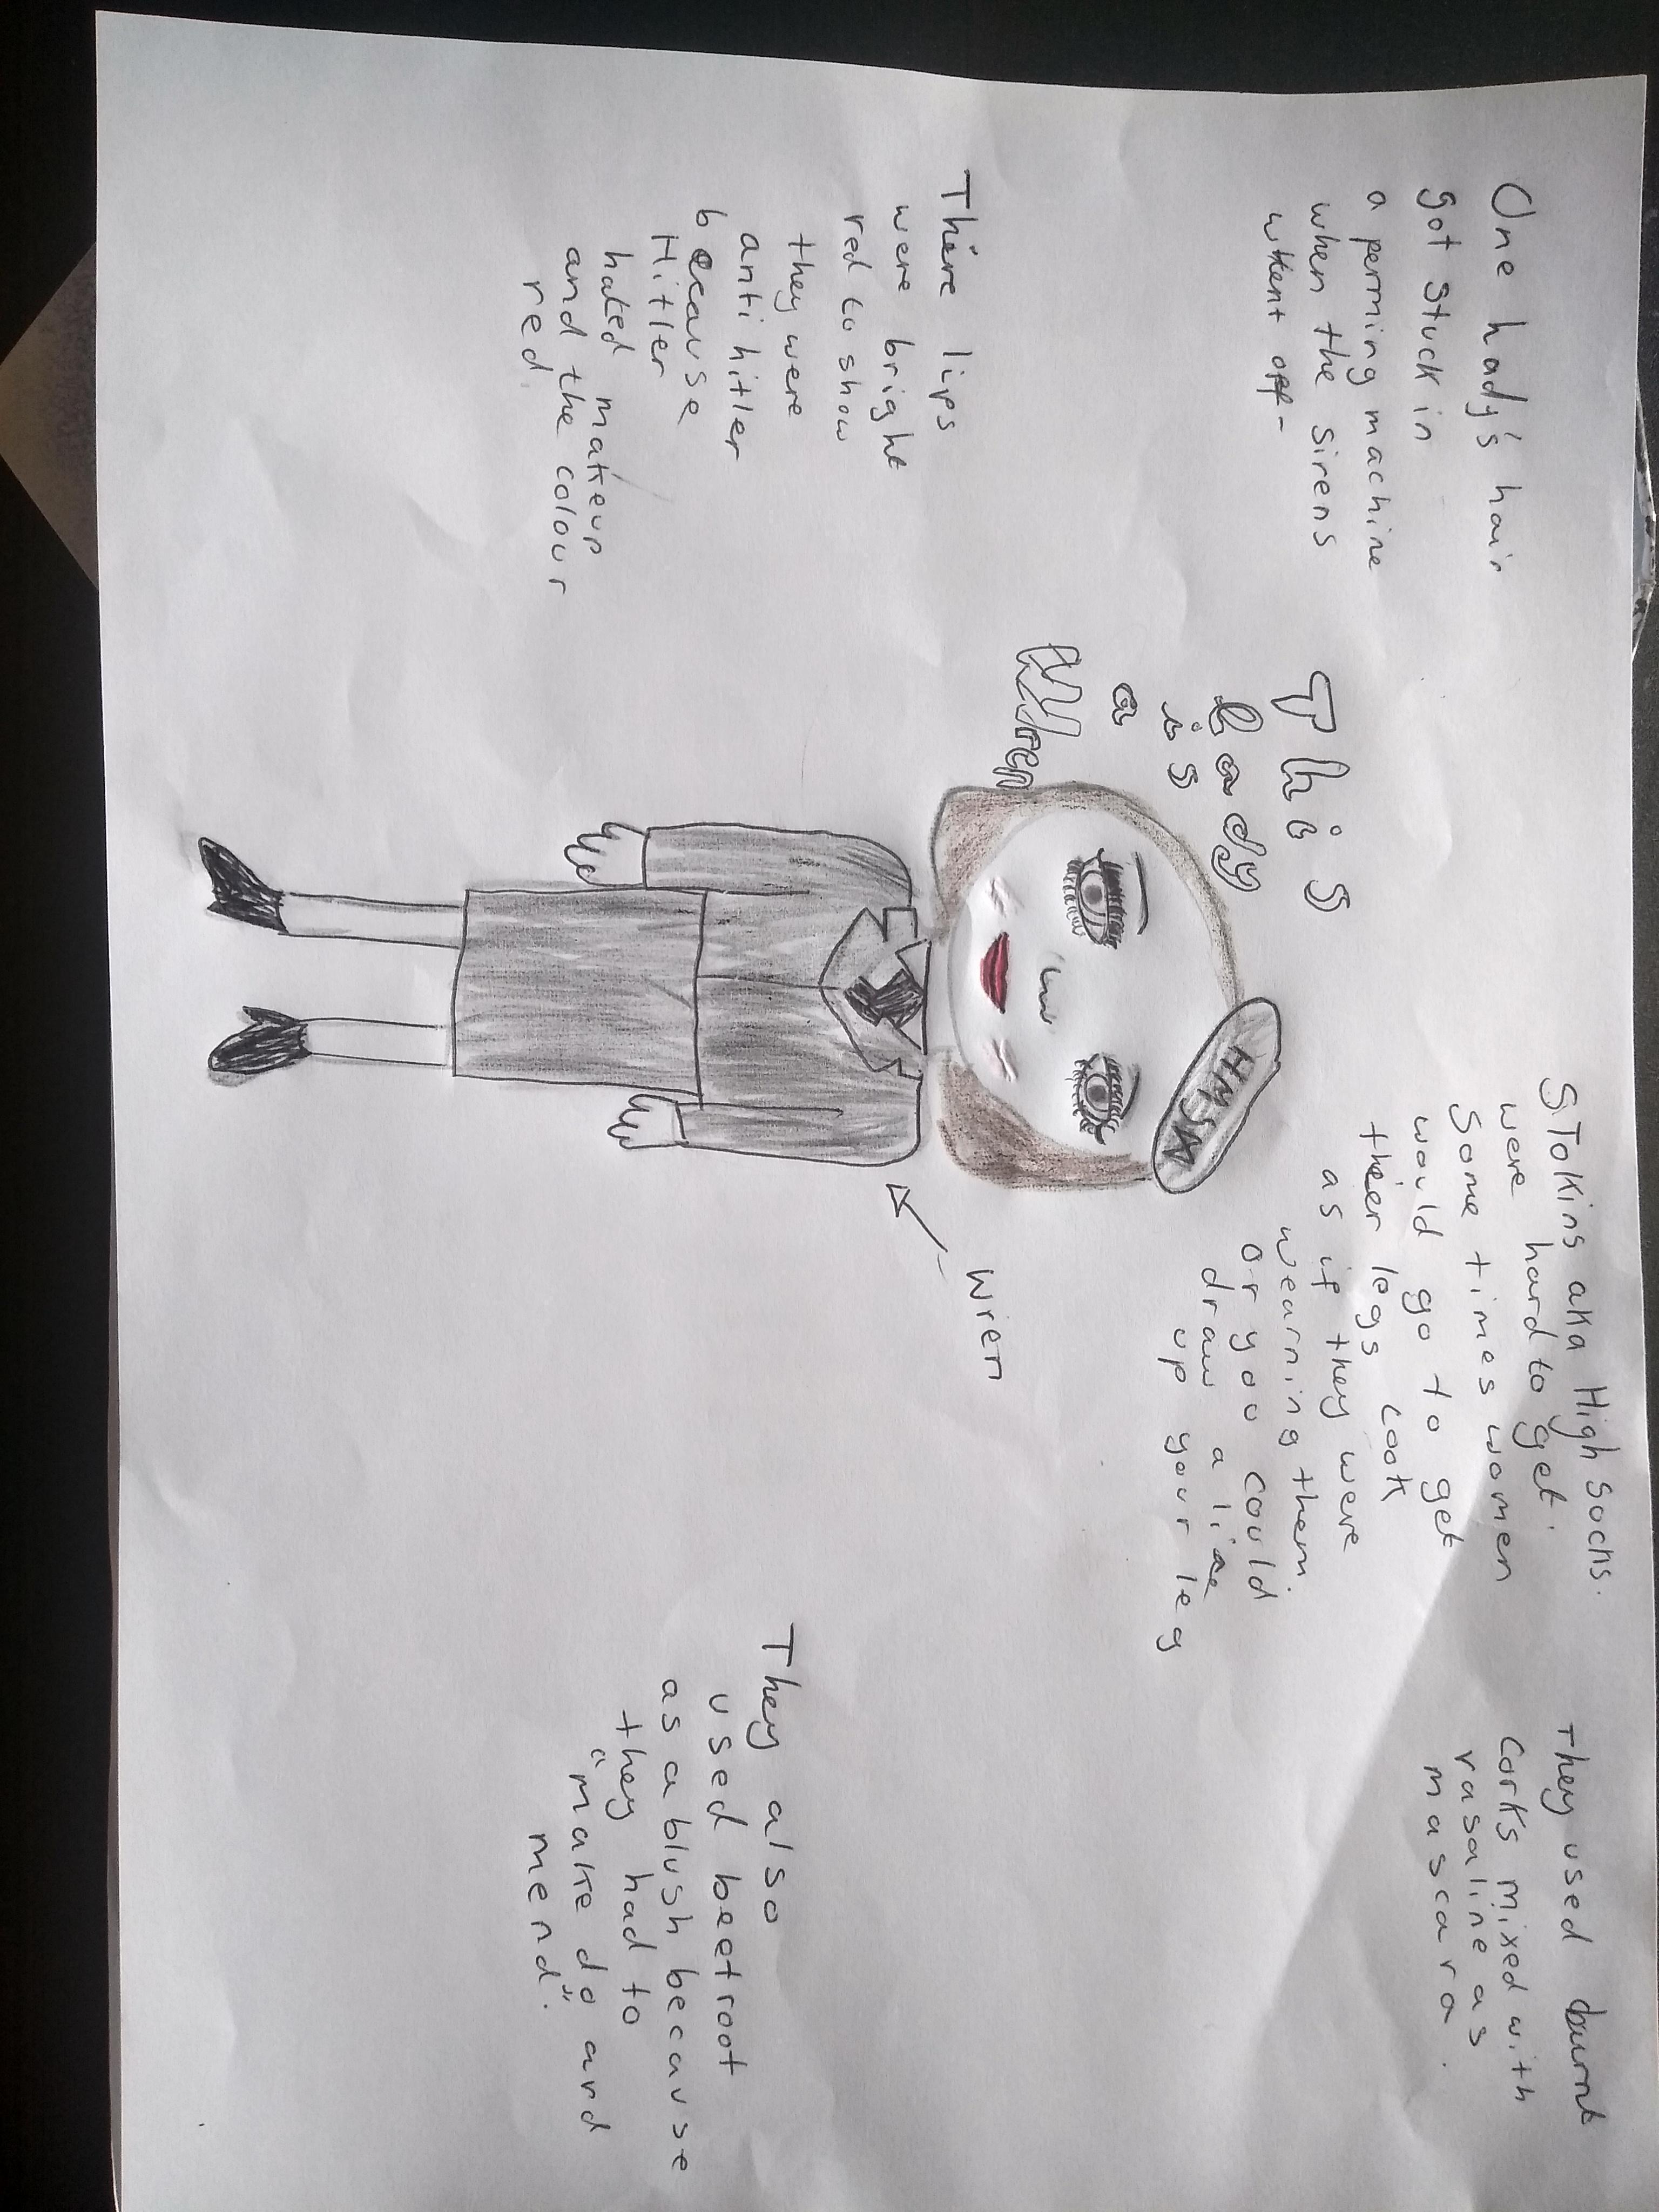 One hady's hair
got stuck in
a perming machine
when the sirens
whent off-
This
lady
is
a
Wren
There lips
were bright
red to show
they were
anti hitler
because
Hitler
hated makeup
and the colour
red.
HMSA
wren
STOKins aka High Socks.
were hard to get.
Some times women
would go to get
their legs look
as if they were
wearning them.
or you could
draw a line
up your leg
They used burnt
corks mixed with
vasaline as
mascara.
They also
used beetroot
as a blush because
they had to
"make do and
mend".